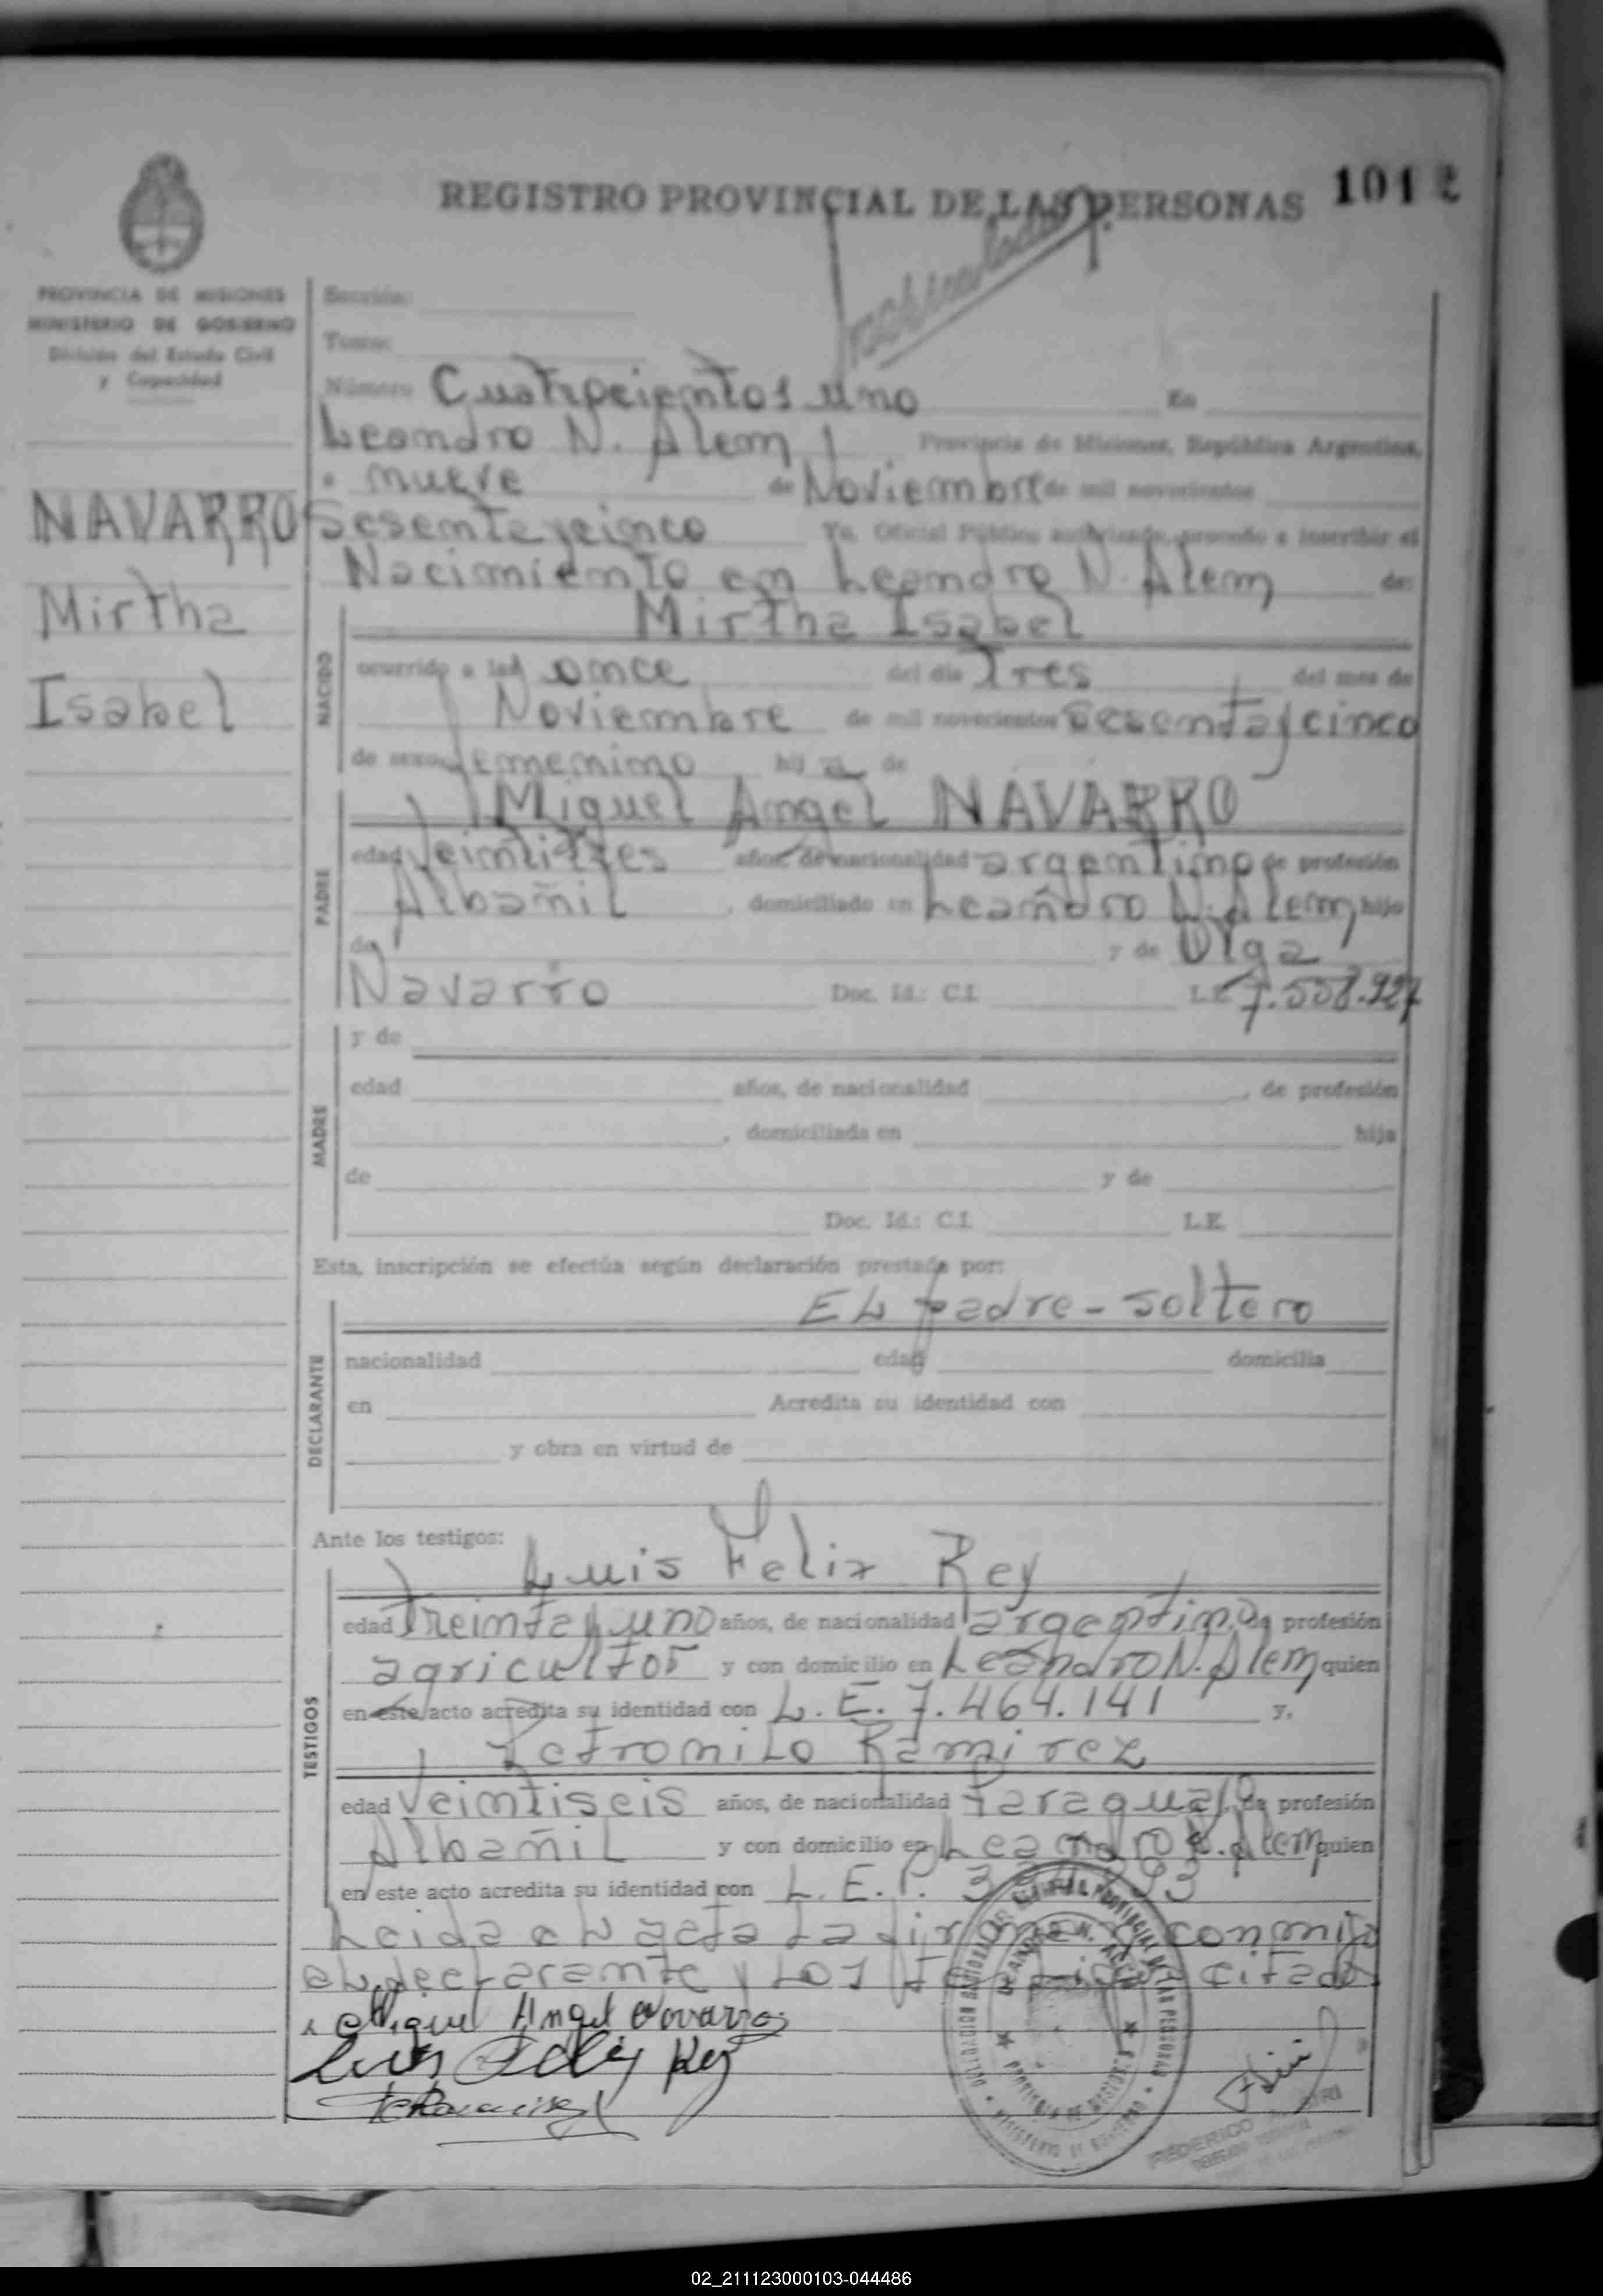 REGISTRO PROVINCIAL DE LAS PERSONAS 1012
Matriculado
PROVINCIA DE MISIONES
MINISTERIO DE GOBIERNO
División del Estado Civil
y Capacidad
NAVARRO
Mirtha
Isabel
Sección:
Tomo:
Número Cuatrocientos uno En
Leandro N. Alem Provincia de Misiones, República Argentina,
a nueve de Noviembre de mil novecientos
Sesenta y cinco Yo, Oficial Público autorizado, procedo a inscribir el
Nacimiento en Leandro N. Alem de:
NACIDO
Mirtha Isabel
ocurrido a las once del día Tres del mes de
Noviembre de mil novecientos sesenta y cinco
de sexo femenino hij a de
PADRE
Miguel Angel NAVARRO
edad Veintitres años, de nacionalidad argentino de profesión
Albañil , domiciliado en Leandro N. Alem hijo
de y de Olga
Navarro Doc. Id.: C.I. L.E. 7.558.927
MADRE
y de
edad años, de nacionalidad , de profesión
, domiciliada en hija
de y de
Doc. Id.: C.I. L.E.
Esta, inscripción se efectúa según declaración prestada por:
DECLARANTE
EL padre - soltero
nacionalidad edad domicilia
en Acredita su identidad con
y obra en virtud de
Ante los testigos:
TESTIGOS
Luis Felix Rey
edad Treinta y uno años, de nacionalidad argentino de profesión
agricultor y con domicilio en Leandro N. Alem quien
en este acto acredita su identidad con L. E. 7.464.141 y,
Petronilo Ramirez
edad Veintiseis años, de nacionalidad paraguayo de profesión
Albañil y con domicilio en Leandro N. Alem quien
en este acto acredita su identidad con L. E. P.
Leida el acta la firman conmigo
el declarante y los testigos citados
Miguel Angel Navarro
Luis Felix Rey
PRamirez
LEANDRO N. ALEM
PROVINCIA DE MISIONES
MINISTERIO DE GOBIERNO
FEDERICO
02_211123000103-044486